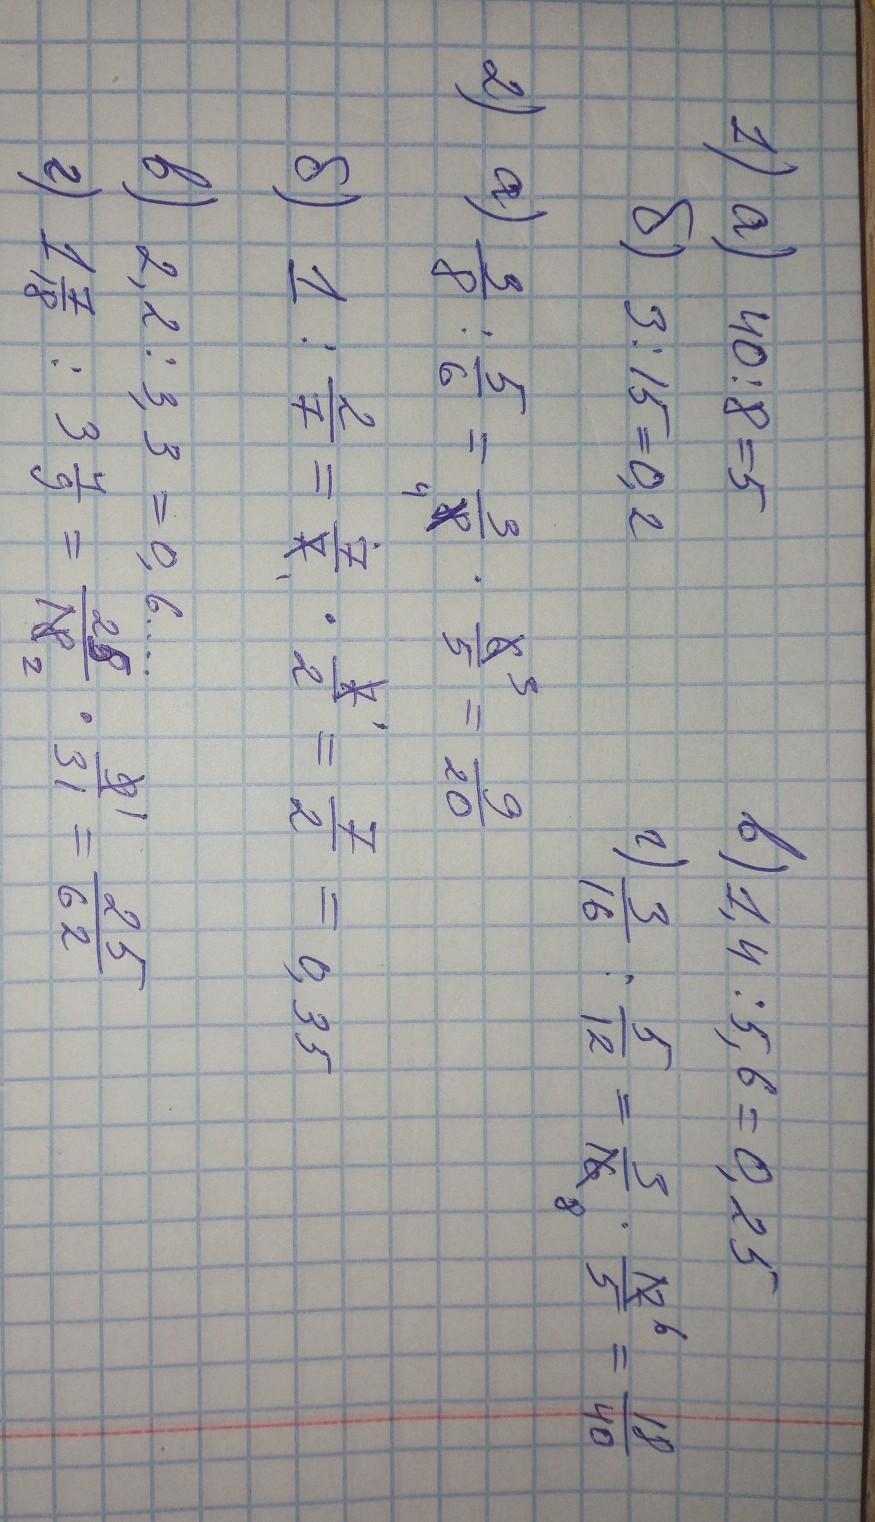 1) а) 40:8=5 в) 1,4:5,6=0,25
б) 3:15=0,2 г) 3/16 : 5/12 = 3/16 8 · 12 6/5 = 18/40
2) а) 3/8 : 5/6 = 3/8 4 · 6 3/5 = 9/20
б) 1 : 2/7 = 7/7 1 · 7 1/2 = 7/2 = 0,35
в) 2,2:3,3=0,6...
г) 1 7/18 : 3 4/9 = 25/18 2 · 9 1/31 = 25/62